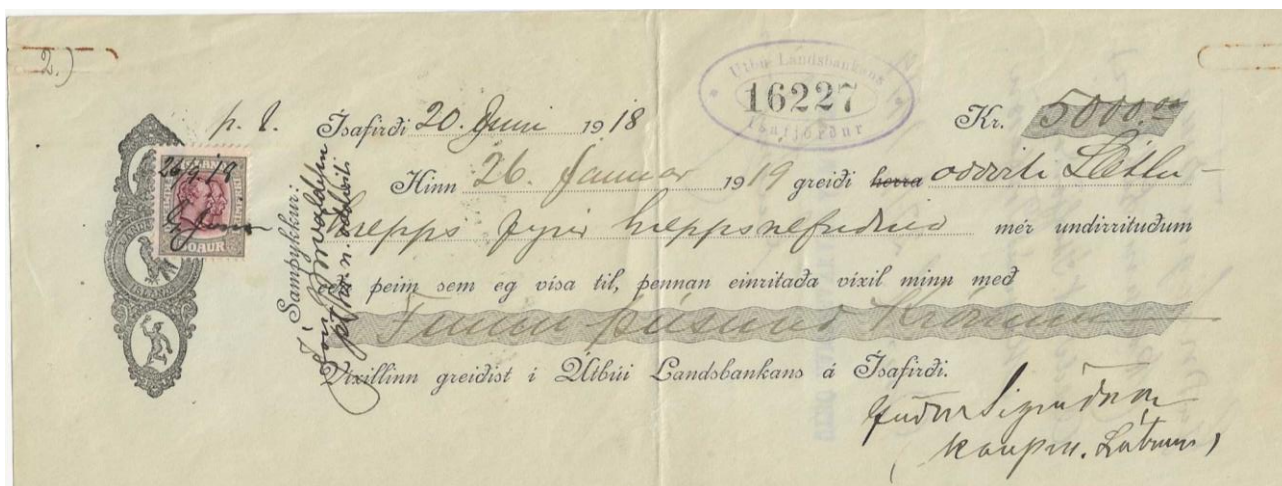 2.)
Útbú Landsbankans
16227
Ísafjörður
p. t. Ísafirði 20. Juni 1918 Kr. 5000.00
Hinn 26. Januar 1919 greiði herra oddviti Sléttu-
hrepps fyrir hreppsnefndina mér undirrituðum
eða þeim sem eg vísa til, þennan einritaða víxil minn með
Fimm þúsund Krónum
Víxillinn greiðist í Útbúi Landsbankans á Ísafirði.
Sigurðsson
(kaupm. Látrum)
Samþykkur:
Jón Þorvaldsson
p.t. oddviti
26/1 19
AUR
ÍSLANDS